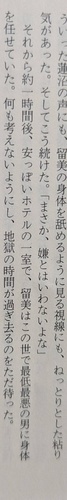 ういった蓮治の声にも、留美の身体を舐めるように見る視線にも、ねっとりとした粘り
気があった。そしてこう続けた。「まさか、嫌とはいわないよな」
それから約一時間後、安っぽいホテルの一室で、留美はこの世で最低最悪の男に身体
を任せていた。何も考えないようにし、地獄の時間が過ぎ去るのをただ待った。